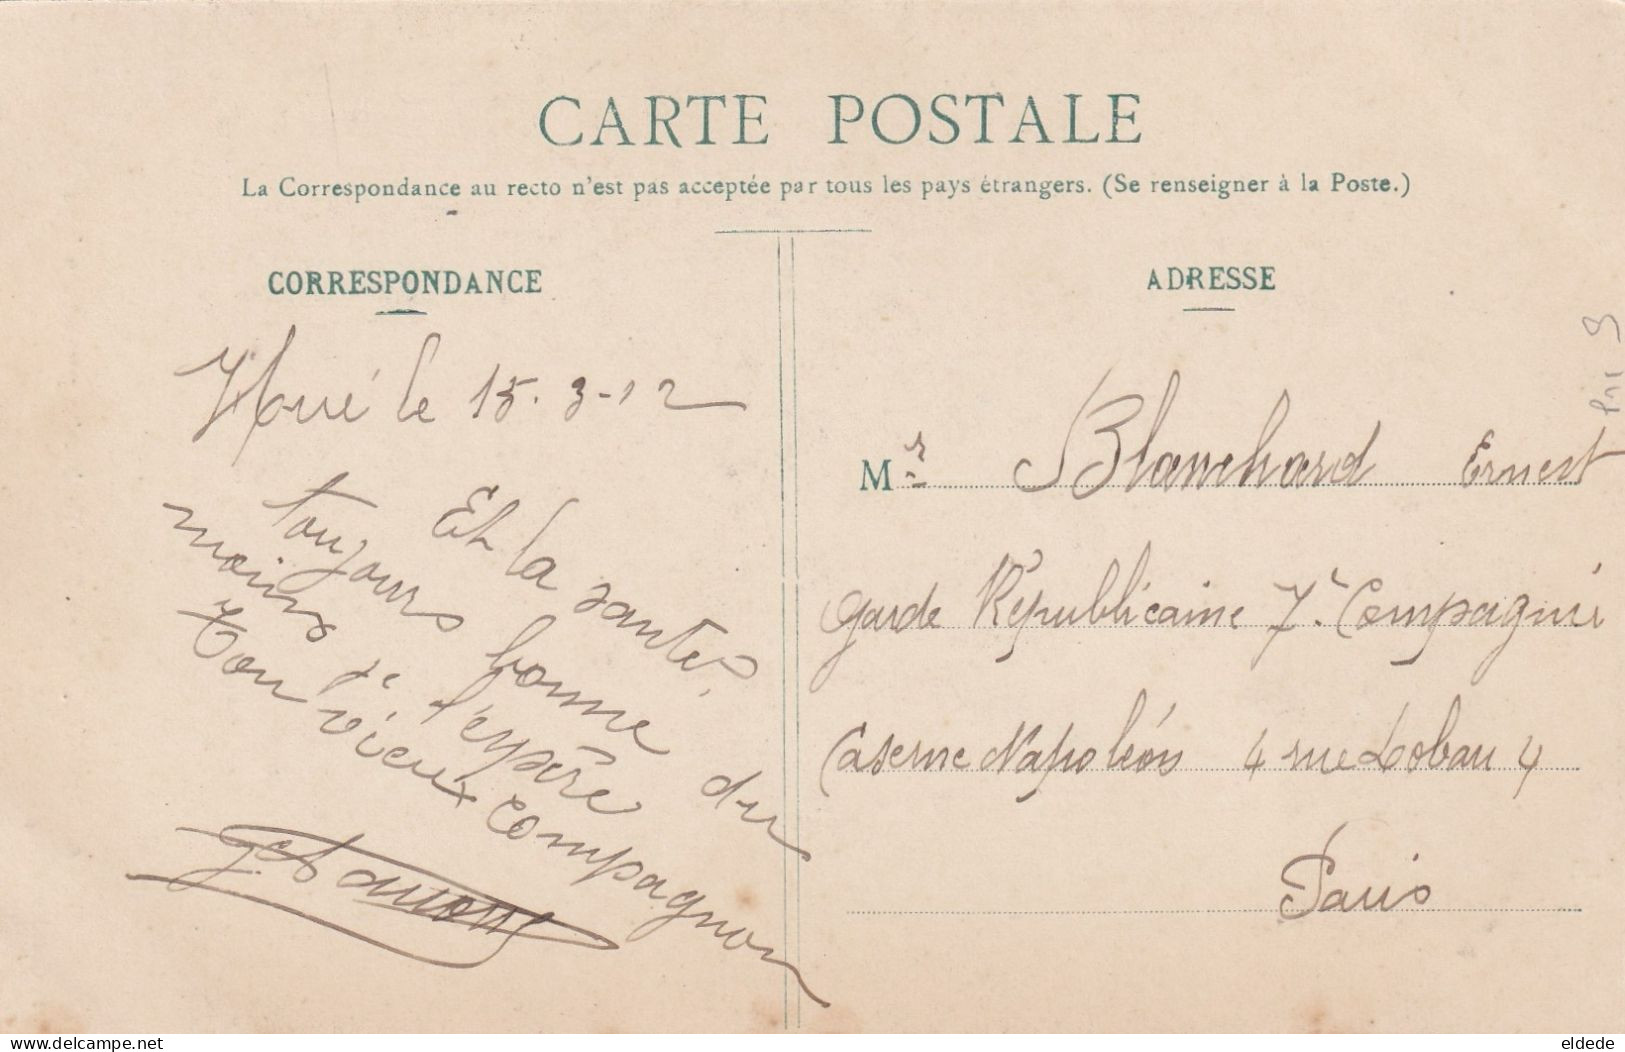 CARTE POSTALE
La Correspondance au recto n'est pas acceptée par tous les pays étrangers. (Se renseigner à la Poste.)
CORRESPONDANCE
le 15.3-12
Et la santé?
toujours bonne du
moins je l'espère
Ton vieux compagnon
ADRESSE
Mr Blanchard Ernest
Garde Républicaine 7e Compagnie
Caserne Napoléon 4 rue Lobau 4
Paris
www.delcampe.net
eldede